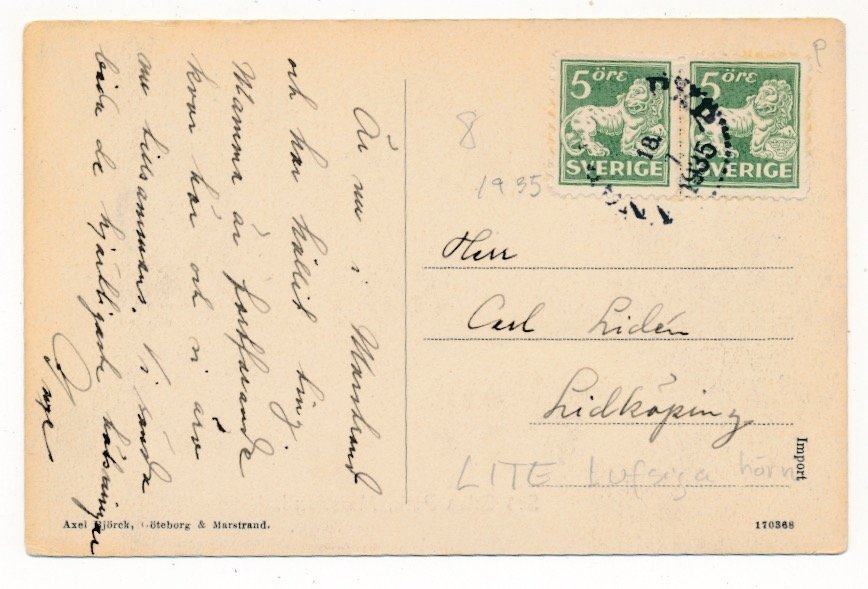 Är nu i Marstrand
och har hållit ting.
Mamma är fortfarande
kvar här och vi äro
nu tillsammans. Vi sända
båda de hjärtligaste hälsningar
5 ÖRE
SVERIGE
5 ÖRE
SVERIGE
PXP
18
1935
P
8
1935
Herr
Carl Lidén
Lidköping
LITE Lufsiga hörn
Import
Axel Björck, Göteborg & Marstrand.
170368